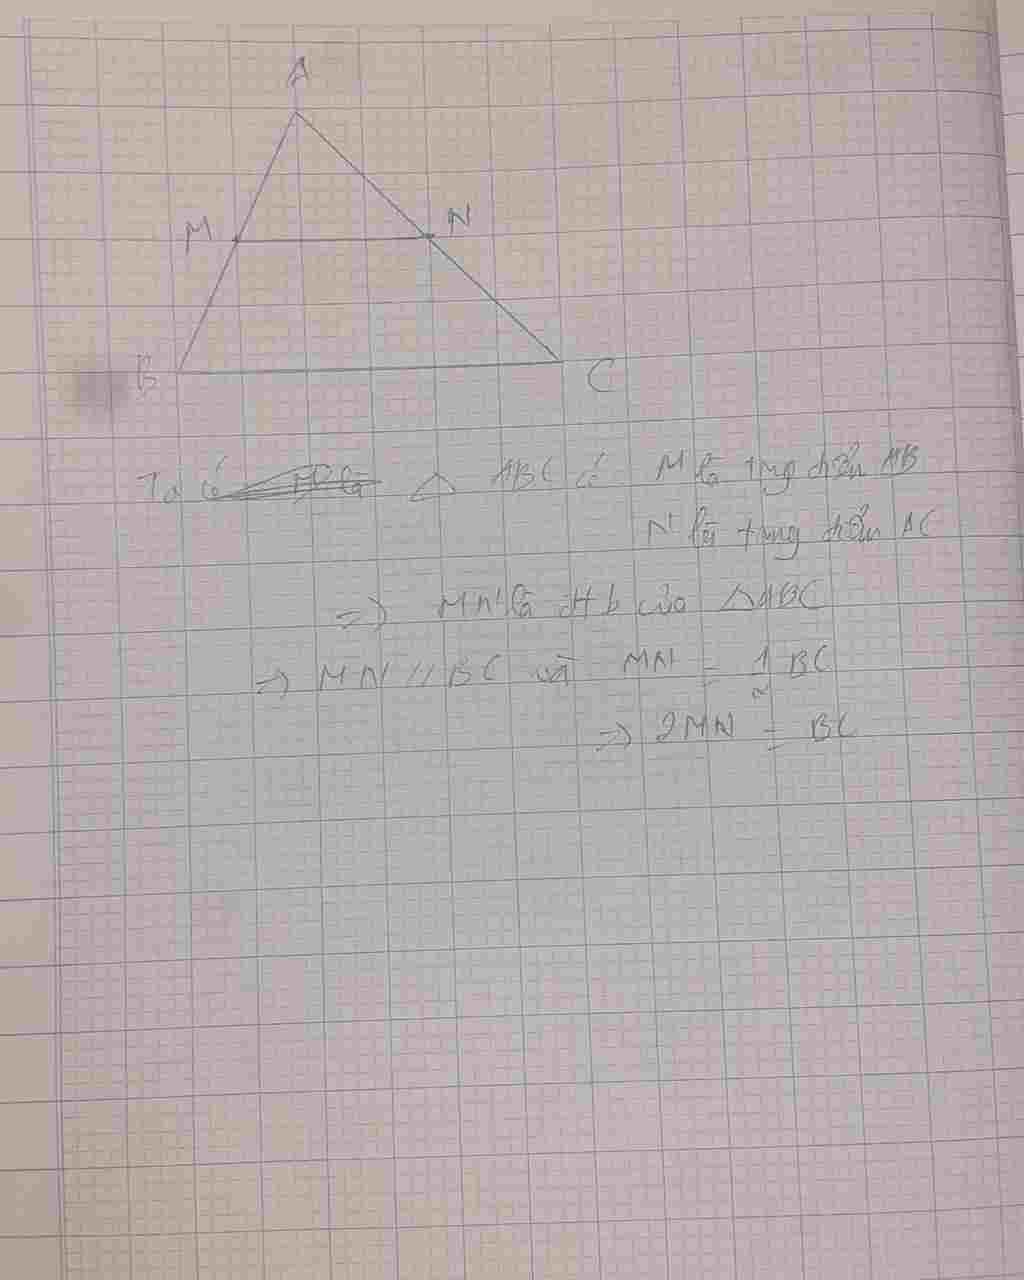 A
M N
B C
Ta có △ ABC có M là trung điểm AB
N là trung điểm AC
=> MN là đtb của △ABC
=> MN // BC và MN = 1/2 BC
=> 2MN = BC